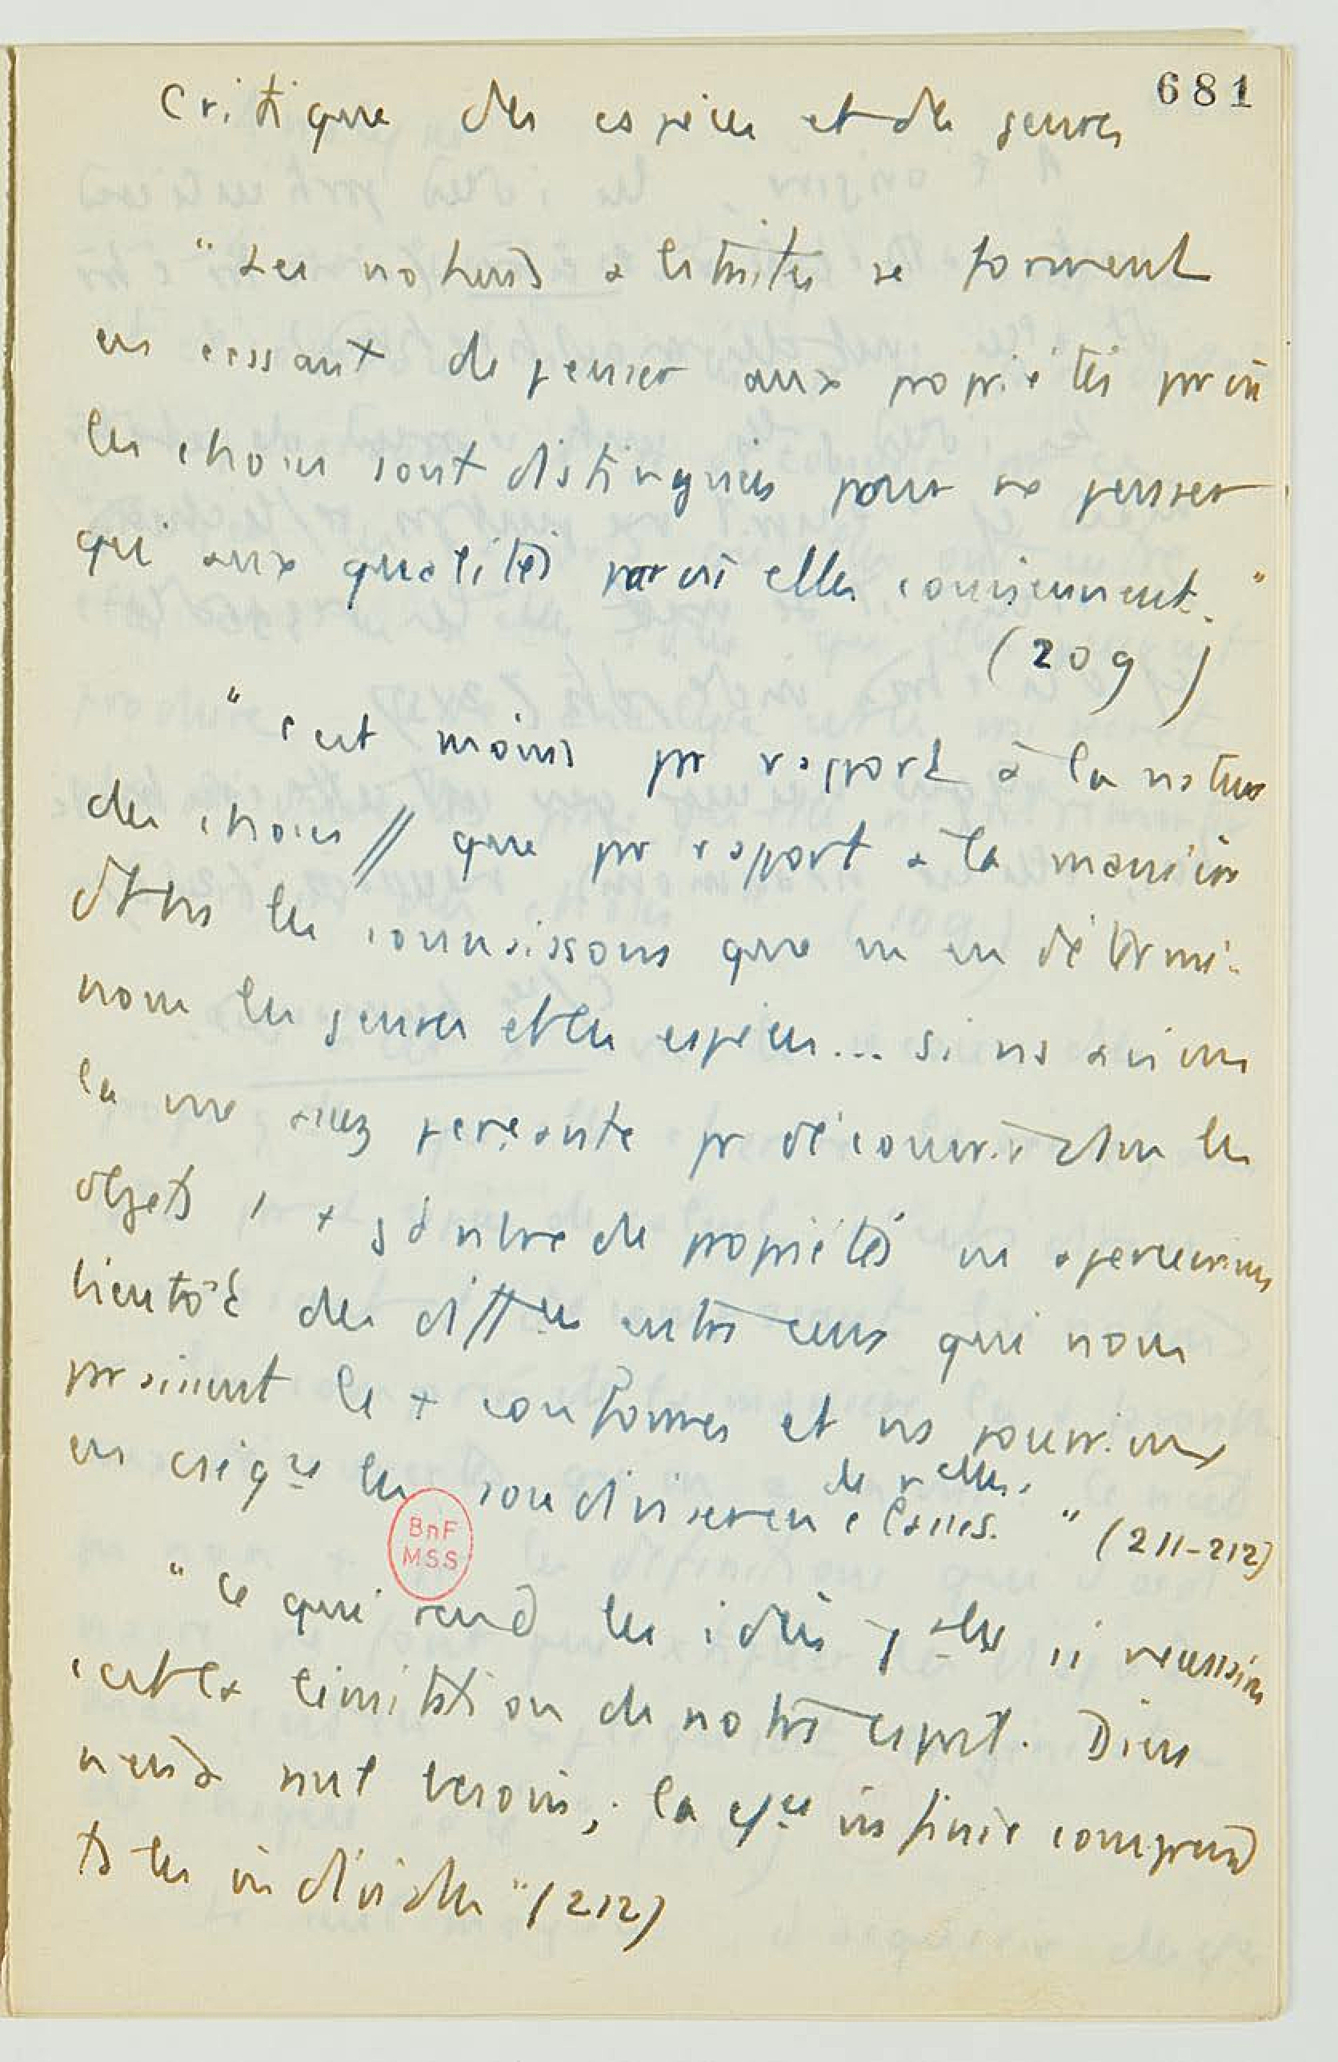 681
Critique des espèces et des genres
"Les notions abstraites se forment
en cessant de penser aux propriétés par où
les choses sont distinguées pour ne penser
qu'aux qualités par où elles conviennent."
(209)
"c'est moins pr rapport à la nature
des choses // que pr rapport à la manière
dt ns les connaissons que ns en détermi-
nons les genres et les espèces... si ns avions
la vue assez perçante pr découvrir ds les
objets 1 + gd nbre de propriétés ns apercevrions
bientôt des diffces entre ceux qui nous
paraissent le + conformes et ns pourrions
en cséqce les sousdiviser en de nelles classes." (211-212)
BnF
MSS
"Ce qui rend les idées gales si nécessaires
c'est la limitation de notre esprit. Dieu
n'en a nul besoin; la infinie comprend
ts les individus" (212)